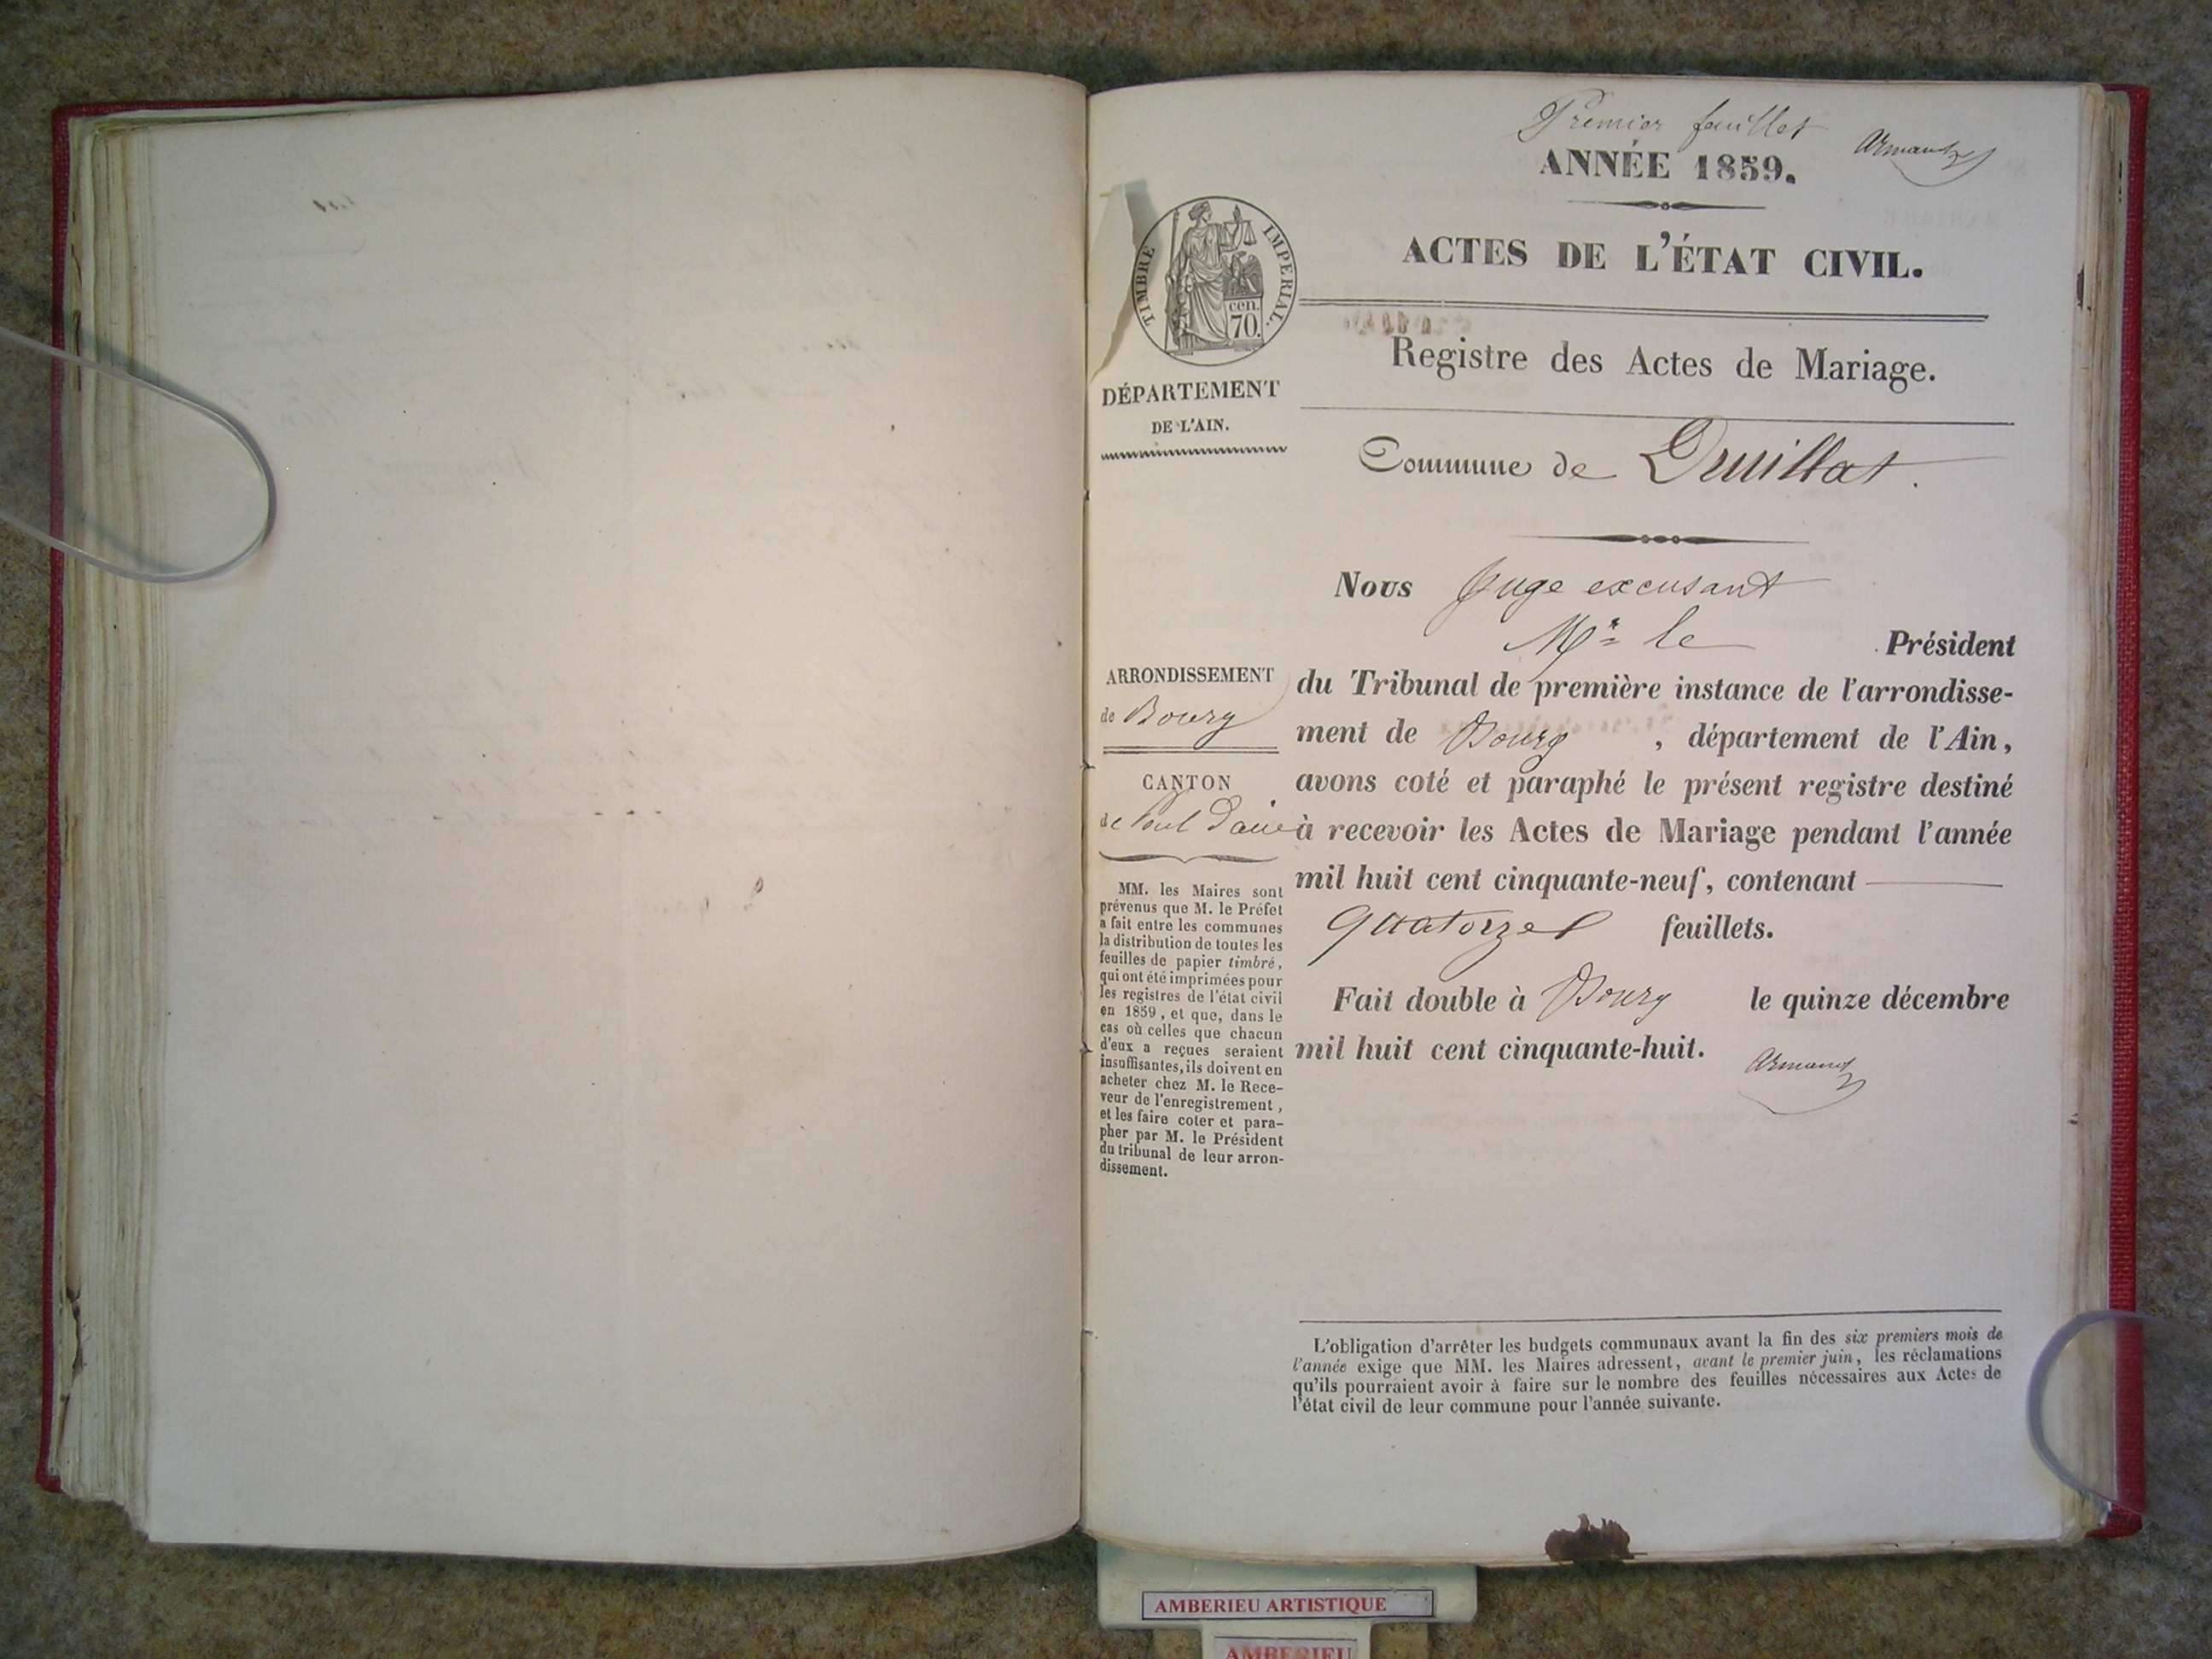 Premier feuillet
Armand
ANNÉE 1859.
ACTES DE L'ÉTAT CIVIL.
TIMBRE IMPERIAL.
cen.
70.
Registre des Actes de Mariage.
DÉPARTEMENT
DE L'AIN.
Commune de Druillat.
Nous Juge excusant
Mr le Président
du Tribunal de première instance de l'arrondisse-
ment de Bourg, département de l'Ain,
avons coté et paraphé le présent registre destiné
à recevoir les Actes de Mariage pendant l'année
mil huit cent cinquante-neuf, contenant
quatorze feuillets.
Fait double à Bourg le quinze décembre
mil huit cent cinquante-huit.
Armand
ARRONDISSEMENT
de Bourg
CANTON
de Pont d'ain
MM. les Maires sont
prévenus que M. le Préfet
a fait entre les communes
la distribution de toutes les
feuilles de papier timbré,
qui ont été imprimées pour
les registres de l'état civil
en 1859, et que, dans le
cas où celles que chacun
d'eux a reçues seraient
insuffisantes, ils doivent en
acheter chez M. le Rece-
veur de l'enregistrement,
et les faire coter et para-
pher par M. le Président
du tribunal de leur arron-
dissement.
L'obligation d'arrêter les budgets communaux avant la fin des six premiers mois de
l'année exige que MM. les Maires adressent, avant le premier juin, les réclamations
qu'ils pourraient avoir à faire sur le nombre des feuilles nécessaires aux Actes de
l'état civil de leur commune pour l'année suivante.
AMBERIEU ARTISTIQUE
AMBERIEU